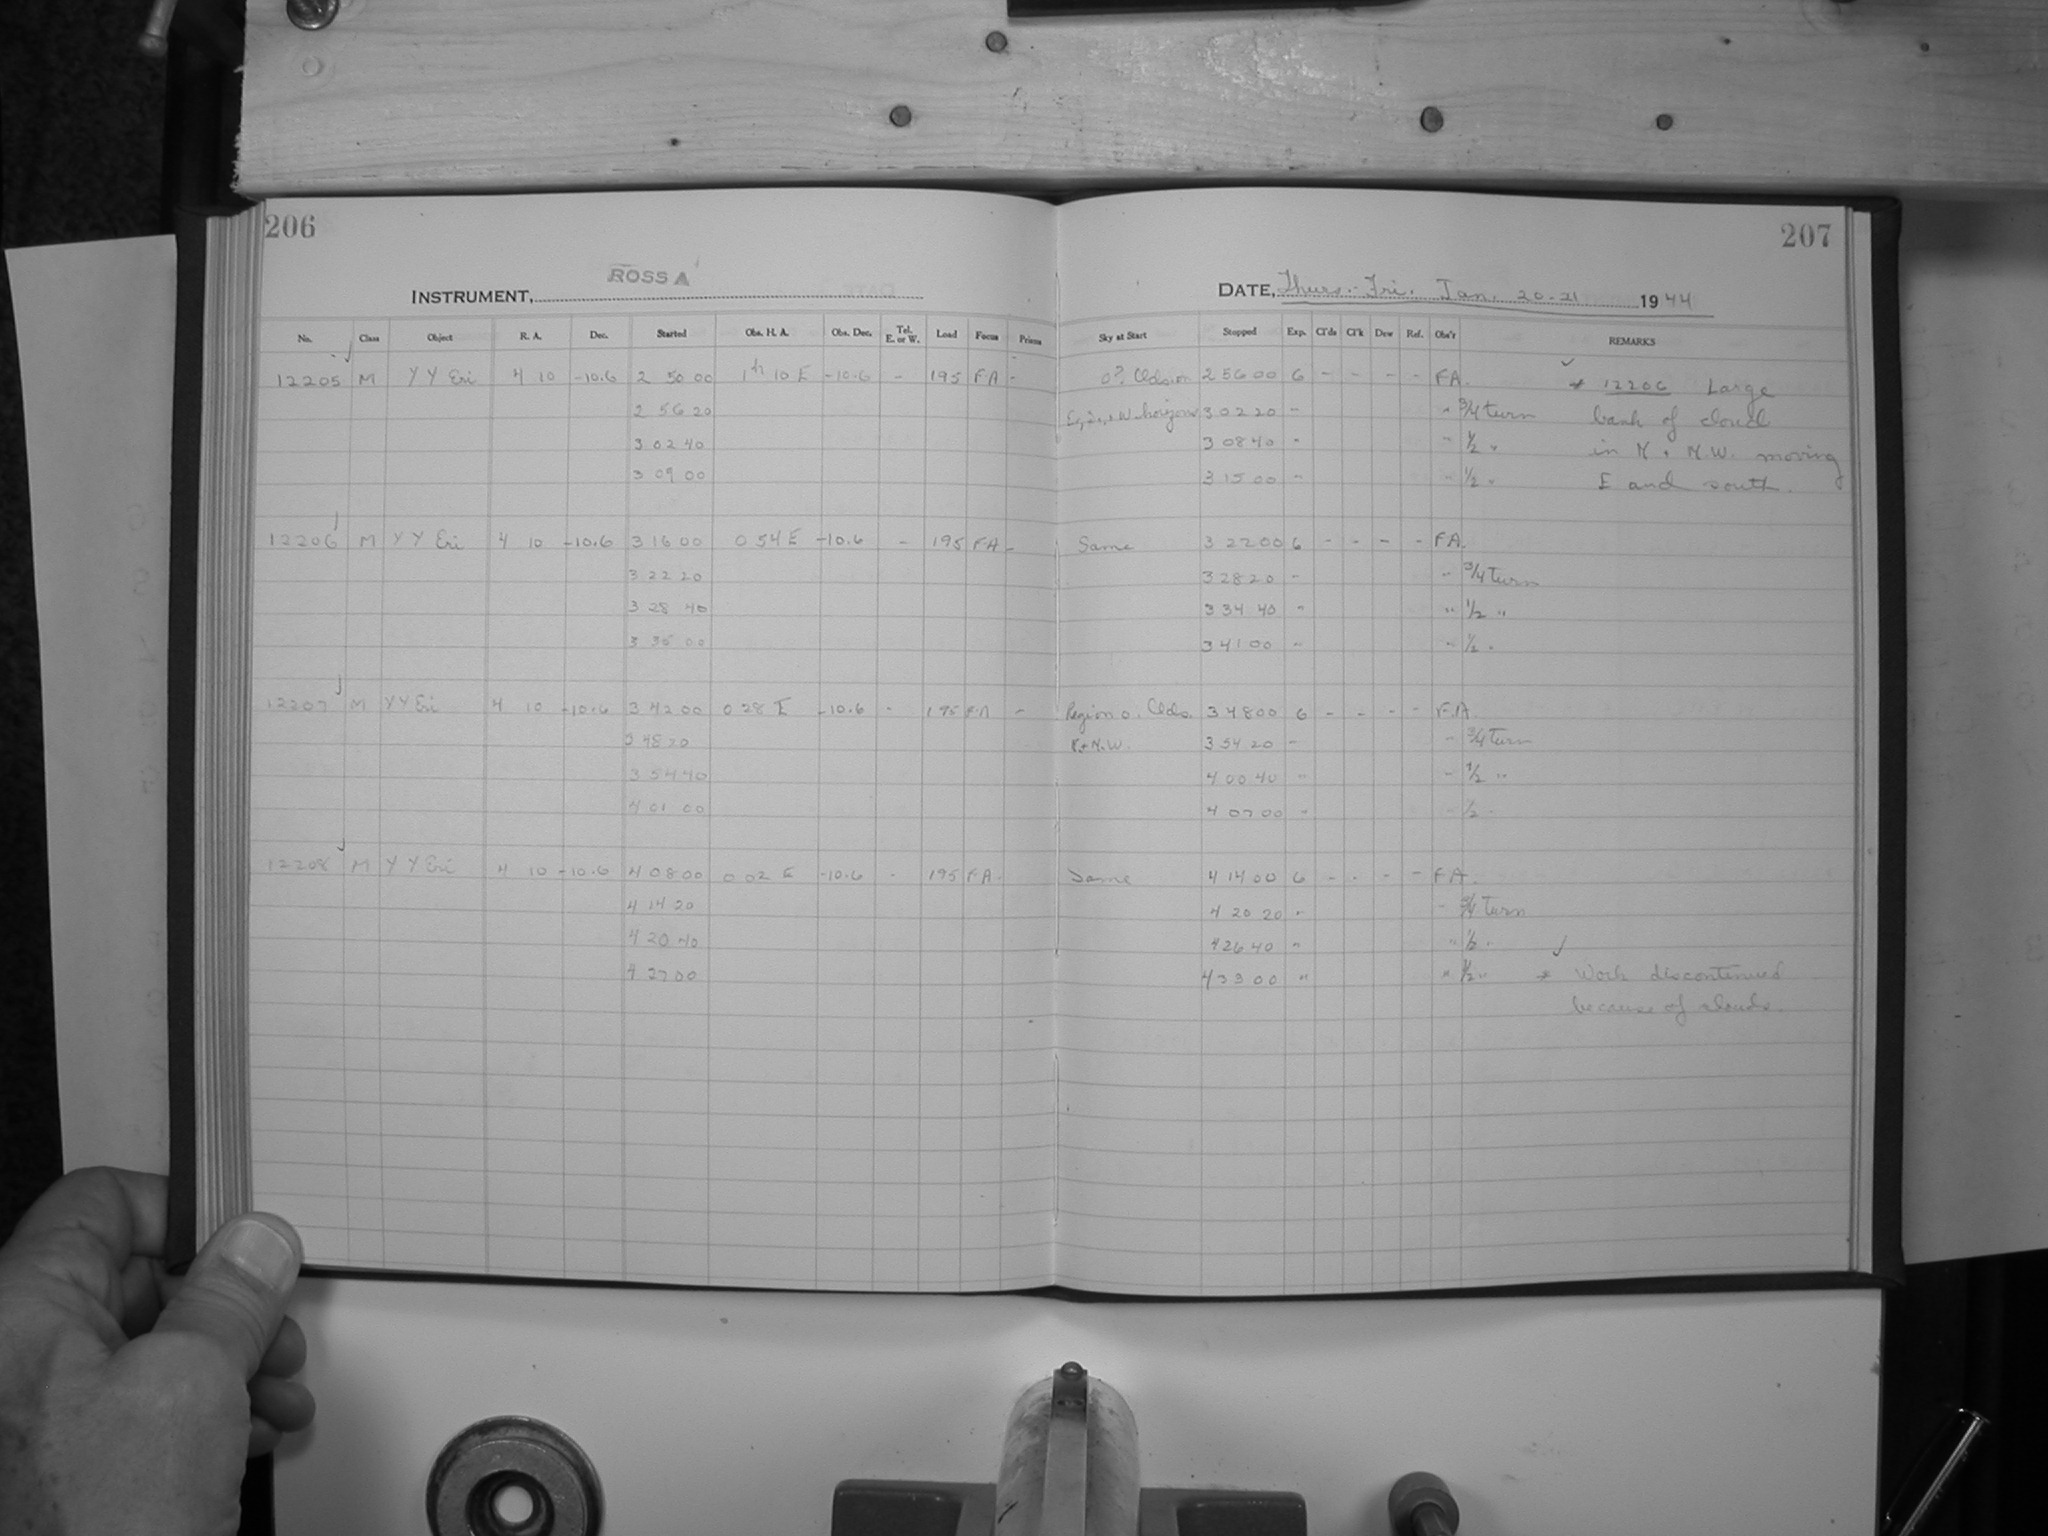 206
207
ROSS A
INSTRUMENT,
DATE, Thurs.-Fri. Jan. 20-21 1944
No. Class Object R. A. Dec. Started Obs. H. A. Obs. Dec. Tel. E. or W. Load Focus Prisms Sky at Start Stopped Exp. Cl'ds Cl'k Dew Ref. Obs'r REMARKS
12205 M YY Eri 4 10 -10.6 2 50 00 1h 10 E -10.6 - 195 FA - Clds. on 2 56 00 6 - - - - FA. * 12206 Large
2 56 20 W. horizon 3 02 20 " " 3/4 turn bank of cloud
3 02 40 3 08 40 " " 1/2 " in N + N.W. moving
3 09 00 3 15 00 " " 1/2 " E and south.
12206 M YY Eri 4 10 -10.6 3 16 00 0 54 E -10.6 - 195 FA - Same 3 22 00 6 - - - - FA.
3 22 20 3 28 20 " " 3/4 turn
3 28 40 3 34 40 " " 1/2 "
3 35 00 3 41 00 " " 1/2 "
12207 M YY Eri 4 10 -10.6 3 42 00 0 28 E -10.6 - 195 FA - Region o. Clds. 3 48 00 6 - - - - FA.
3 48 20 N + N.W. 3 54 20 " " 3/4 turn
3 54 40 4 00 40 " " 1/2 "
4 01 00 4 07 00 " " 1/2 "
12208 M YY Eri 4 10 -10.6 4 08 00 0 02 E -10.6 - 195 FA - Same 4 14 00 6 - - - - FA.
4 14 20 4 20 20 " " 3/4 turn
4 20 40 4 26 40 " " 1/2 "
4 27 00 4 33 00 " " 1/2 " * Work discontinued
because of clouds.